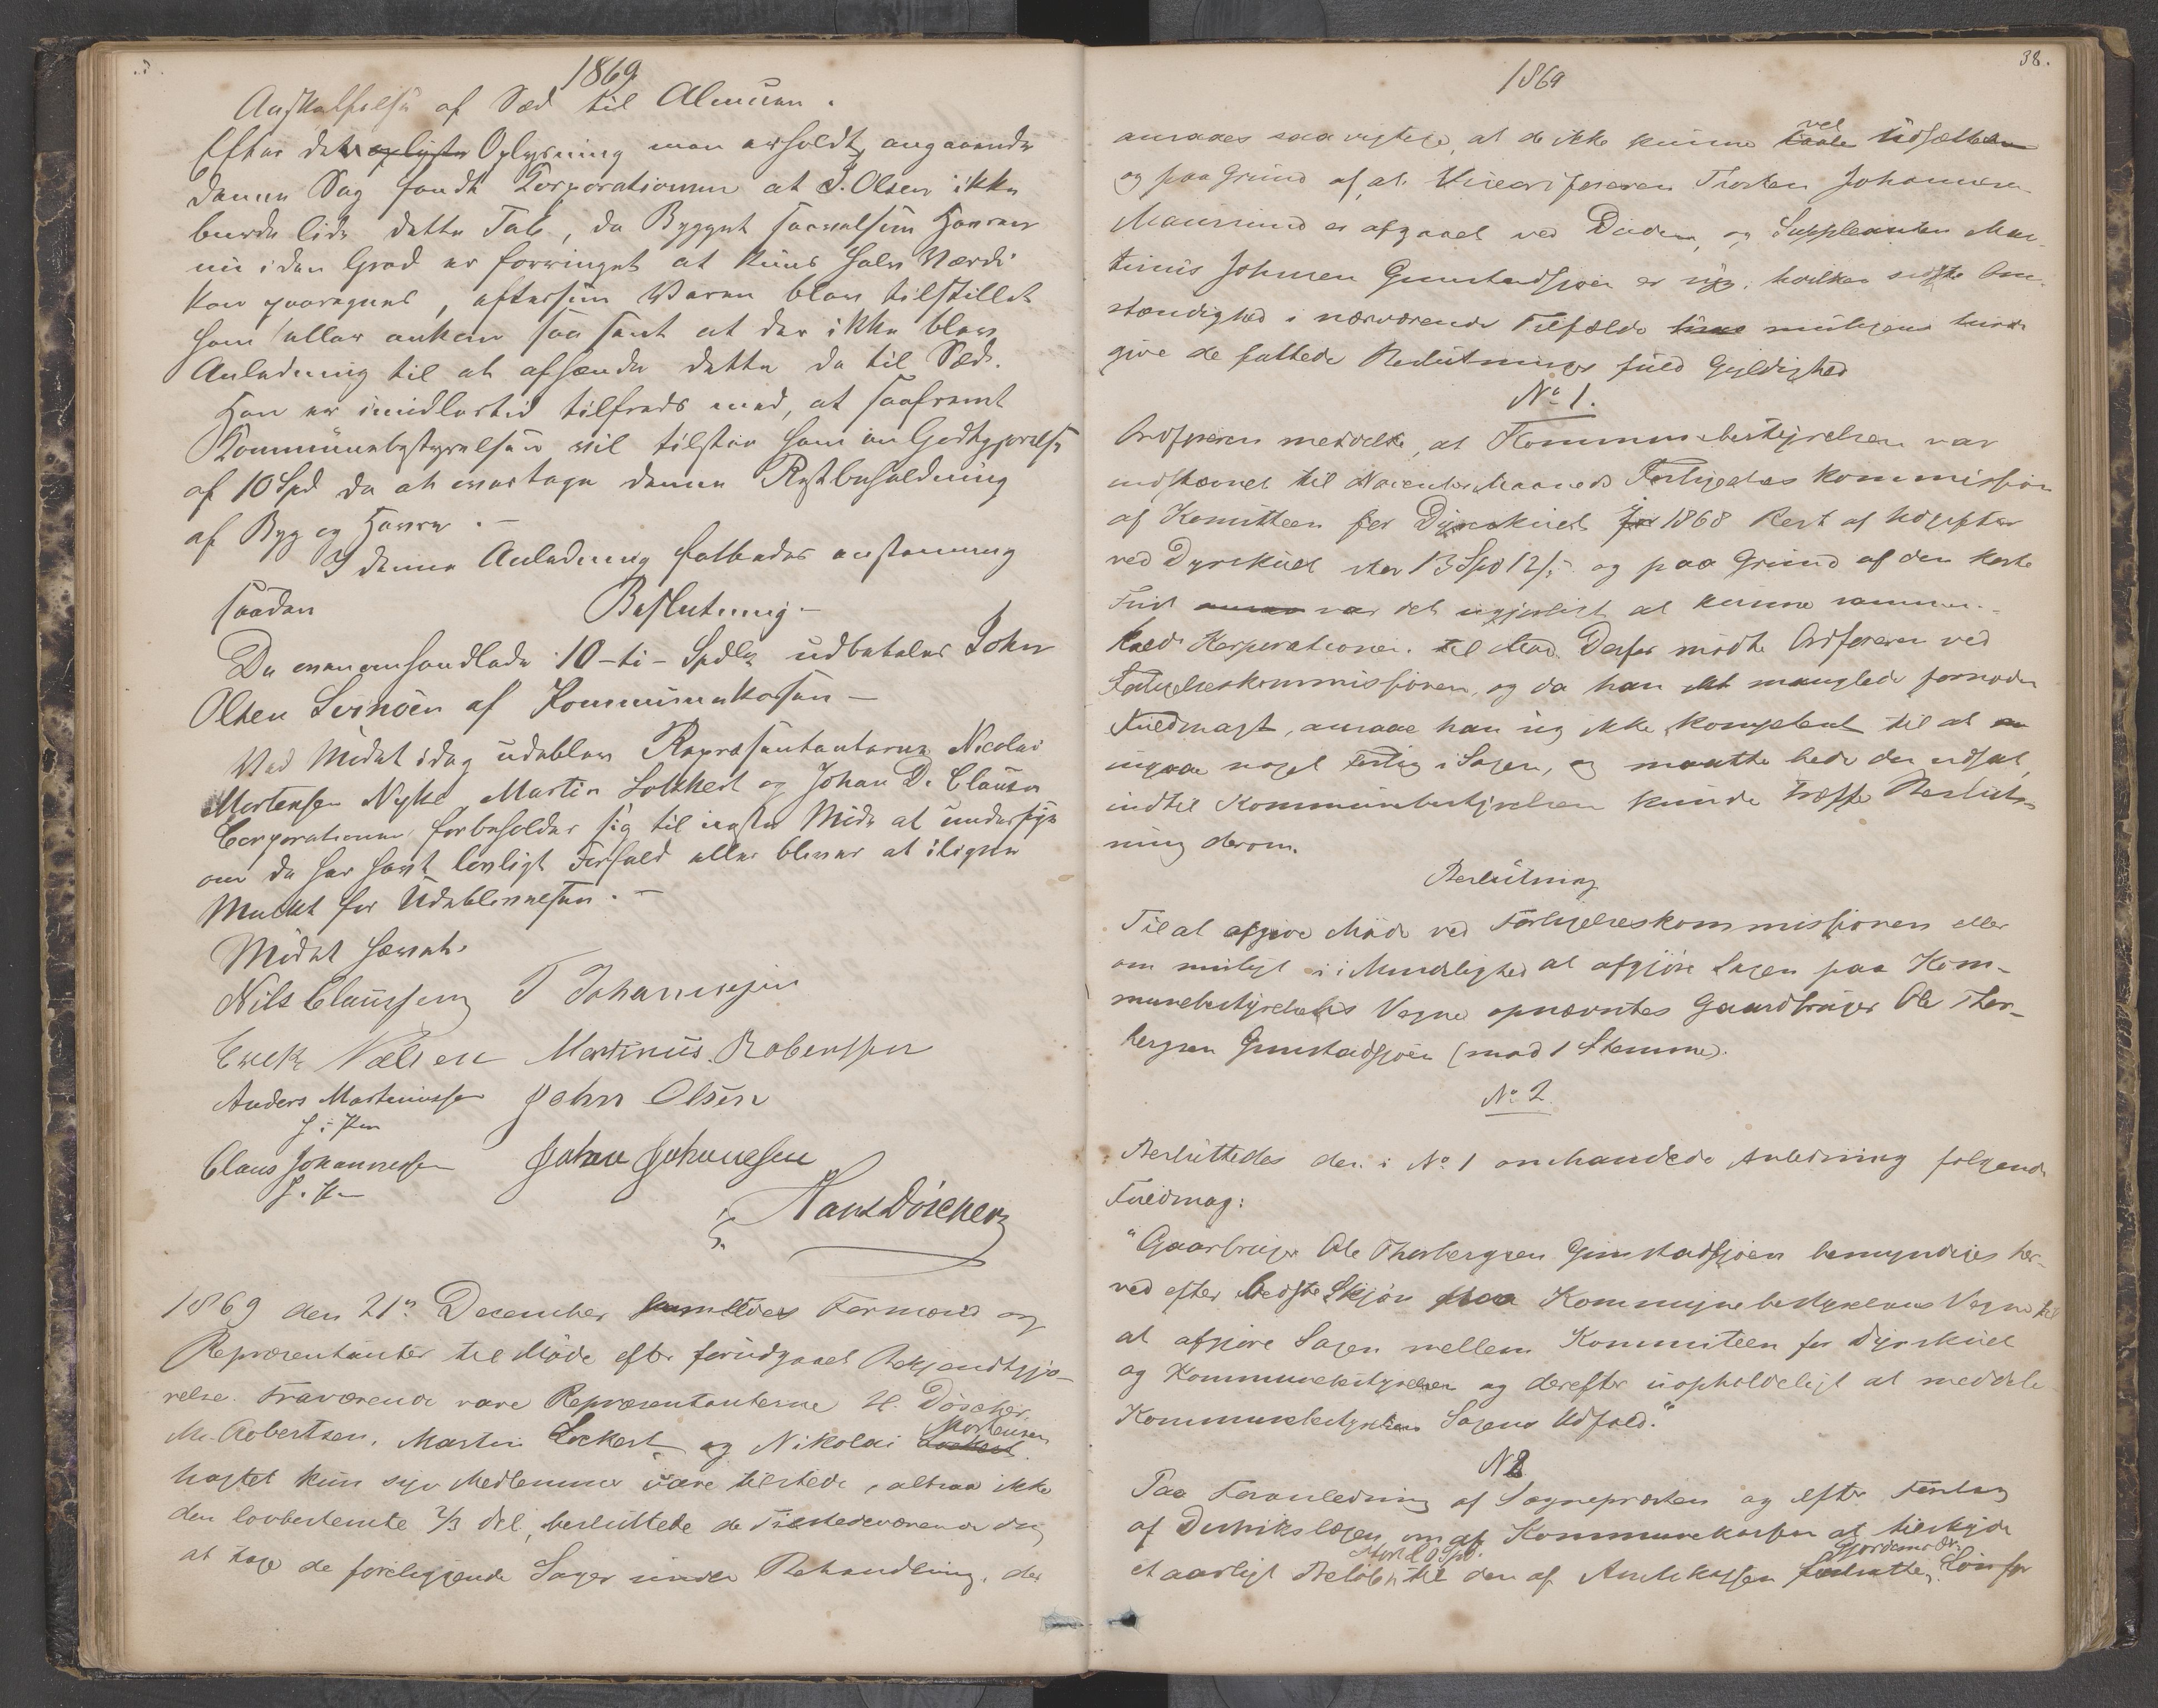 1869
Anskaffelse af Sæd til Almuen.
Efter den oplyste Oplysning man erholdt angaaende
denne Sag fandt Corporationen at J. Olsen ikke
burde lide dette Tab, da Bygget saavelsom Havren
nu i den Grad er forringet at kuns halv Værdi
kan paaregnes, eftersom Varen blev tilstillet
ham eller anken saa sent at der ikke blev
Anledning til at afhænde dette da til Sæd.
Han er imidlertid tilfreds med, at saafremt
Kommunebestyrelsen vil tilstaa ham en Godtgjørelse
af 10 Spd da at overtage denne Restbeholdning
af Byg og Havre. –
I denne Anledning fattedes enstemmig
saadan Beslutning. –
De ovenomhandlede 10 – ti – Spdlr udbetales John
Olsen Svinøen af Kommunekassen –
Ved Mødet idag udeblev Repræsentanterne Nicolai
Mortensen Nyke, Martin Lokkert og Johan D. Clausen
Corporationen forbeholder sig til næste Møde at undersøge
om de har havt lovligt Forfald eller bliver at ilignes
Mulkt for Udeblivelsen. –
Mødet hævet.
Nils Claussen T Johannesen
Erek Nælsen Martinus Robertsen
Anders Martinussen John Olsen
Claus Johannessen Johan Johanesen
Hans Döscher
1869 den 21de December samledes Formænd og
Repræsentanter til Møde efter forudgaaet Bekjendtgjø-
relse. Fraværende vare Repræsentanterne H. Döscher,
M. Robertsen, Martin Lockert og Nikolai Lockert Mortensen
hvortil kun syv Medlemmer vare tilstede, altsaa ikke
den lovbestemte 2/3 del, besluttede de Tilstedeværende dog
at tage de foreliggende Sager under Behandling, der
38.
1869
ansaaes saa vigtige, at de ikke kunne taale vel Udsættelse
og paa Grund af, at Viceordføreren Thosten Johannesen
Maursund er afgaaet ved Døden, og Suppleanten Mar-
tinus Johnsen Gunstadsjøen er syg, hvilken sidste Om-
stændighed i nærværende Tilfælde muligens turde
give de fattede Beslutninger fuld Gyldighed
No 1.
Ordføreren meddelte, at Kommunebestyrelsen var
indstævnet til November Maaneds Forligelseskommission
af Komitteen for Dyrskuet for 1868 Rest af Udgifter
ved Dyrskuet stor 13 Spd 12 s. og paa Grund af den korte
Frist var det ugjørligt at kunne sammen-
kalde Korporationen til Mød. Derfor mødte Ordføreren ved
Forligelseskommissionen, og da han manglede fornøden
Fuldmagt, ansaae han sig ikke kompetent til at
indgaae noget Forlig i Sagen, og maatte bede den udsat,
indtil Kommunebestyrelsen kunde træffe Beslut-
ning derom.
Beslutning
Til at afgive Møde ved Forligelseskommissionen eller
om muligt i Mindelighed at afgjøre Sagen paa Kom-
munebestyrelsens Vegne opnævntes Gaardbruger Ole Thor-
bergsen Gunstadsjøen (mod 1 Stemme).
No 2.
Besluttedes den i No 1 omhandlede Anledning følgende
Fuldmag:
"Gaarbruger Ole Thorbergsen Gunstadsjøen bemyndiges her-
ved efter bedste Skjøn paa Kommunebestyrelsens Vegne til
at afgjøre Sagen mellem Kommiteen for Dyrskuet
og Kommunebestyrelsen og derefter uopholdeligt at meddele
Kommunebestyrelsen Sagens Udfald."
N 2
Paa Foranledning af Sognepræsten og efter Forslag
af Distriktslægen om af Kommunekassen at tilskyde
et aarligt Beløb stort 20 Spd. til den af Amtskassen Gjordemoder Løn for